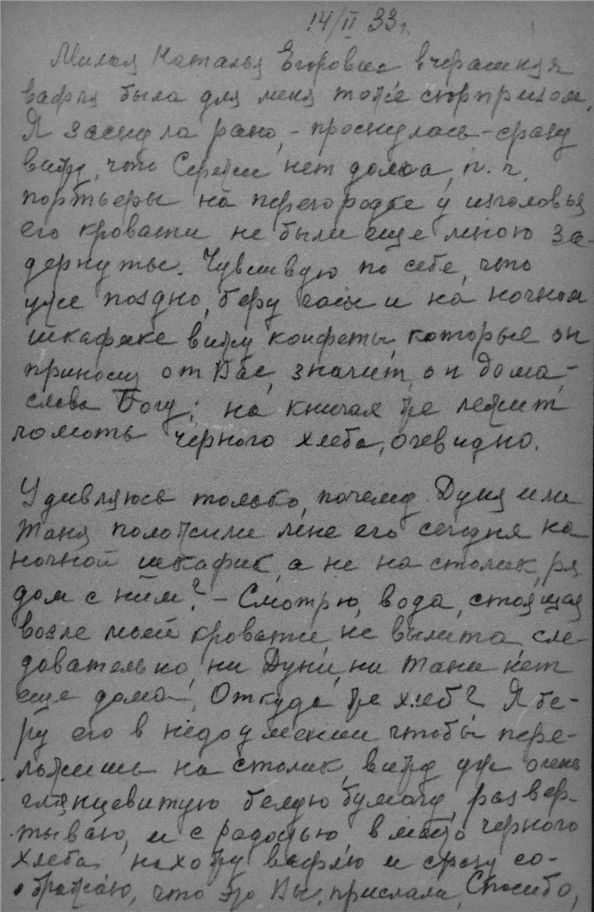 14/II 33 г.
Милая Наталья Егоровна вчерашняя
вафля была для меня тоже сюрпризом.
Я заснула рано, – проснулась – сразу
вижу, что Сережи нет дома, п. ч.
портьеры на перегородке у изголовья
его кровати не были еще мною за-
дернуты. Чувствую по себе, что
уже поздно, беру часы и на ночном
шкафике вижу конфеты, которые он
приносит от Вас, значит, он дома, –
слава Богу; на книгах же лежит
ломоть черного хлеба, очевидно.
Удивляюсь только, почему Дуня или
Таня положили мне его сегодня на
ночной шкафик, а не на столик, ря
дом с ним? – Смотрю, вода, стоящая
возле моей кровати не вылита, сле-
довательно, ни Дуни, ни Тани нет
еще дома. Откуда же хлеб? Я бе-
ру его в недоумении чтобы пере-
ложить на столик, вижу уже очень
глянцевитую белую бумагу, развер-
тываю, и с радостью вместо черного
хлеба нахожу вафлю и сразу со-
ображаю, что это Вы прислали. Спасибо,